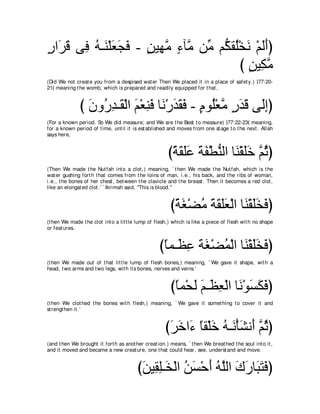 (أَلَمْ نَخْلُقكُّم مِّن مَّآءٍ مَّهِينٍ - فَجَعَلْنَـهُ فِى قَرَارٍ
مَّكِينٍ )
(Did We not create you from a despised water Then We placed it in a place of safety.) (77:20-
21) meaning the womb, which is prepared and readily equipped for that,
(إِلَى قَدَرٍ مَّعْلُومٍ - فَقَدَرْنَا فَنِعْمَ الْقَـدِرُونَ )
(For a known period. So We did measure; and We are the Best to measure) (77:22-23( meaning,
for a known period of time, until it is established and moves from one stage to the next. Allah
says here,
(ثُمَّ خَلَقْنَا النُّطْفَةَ عَلَقَةً)
(Then We made the Nutfah into a clot,) meaning, ` then We made the Nutfah, which is the
water gushing forth that comes from the loins of man, i.e., his back, and the ribs of woman,
i.e., the bones of her chest, between the clavicle and the breast. Then it becomes a red clot,
like an elongated clot.' ` Ikrimah said, "This is blood."
(فَخَلَقْنَا الْعَلَقَةَ مُضْغَةً)
(then We made the clot into a little lump of flesh,) which is like a piece of flesh with no shape
or features.
(فَخَلَقْنَا الْمُضْغَةَ عِظَـماً)
(then We made out of that little lump of flesh bones,) meaning, ` We gave it shape, with a
head, two arms and two legs, with its bones, nerves and veins.'
(فَكَسَوْنَا الْعِظَـمَ لَحْماً)
(then We clothed the bones with flesh,) meaning, ` We gave it something to cover it and
strengthen it.'
(ثُمَّ أَنشَأْنَـهُ خَلْقاً ءَاخَرَ)
(and then We brought it forth as another creation.) means, ` then We breathed the soul into it,
and it moved and became a new creature, one that could hear, see, understand and move.
(فَتَبَارَكَ اللَّهُ أَحْسَنُ الْخَـلِقِينَ)